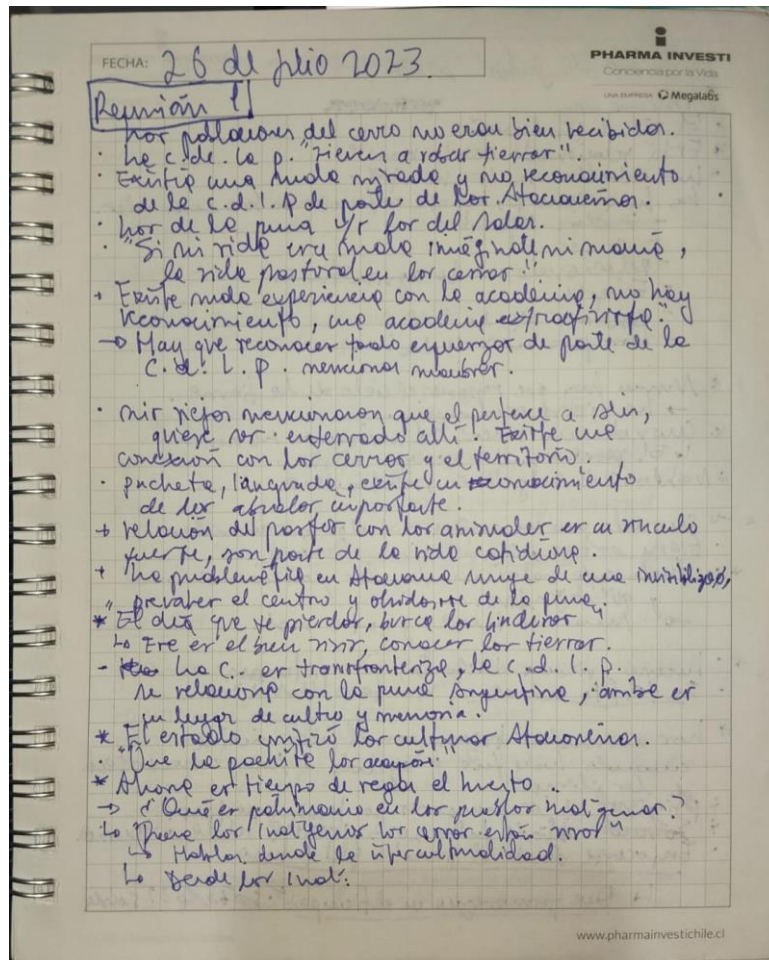 PHARMA INVESTI
Conciencia por la Vida
UNA EMPRESA Megalabs
FECHA: 26 de julio 2023.
Reunión 1
Los pobladores del cerro no eran bien recibidos.
· La c. de. la p. "vienen a robar tierras".
· Existía una mala mirada y no reconocimiento
de la c.d.l.p de parte de los Atacameños.
· Los de la puna v/s los del salar.
· "Si mi vida era mala imagínate mi mamá,
la vida pastoral en los cerros".
+ Existe mala experiencia con la academia, no hay
reconocimiento, una academia extractivista."
→ Hay que reconocer todo esfuerzo de parte de la
C. d. L. P. mencionar nombres.
· mis viejos mencionaron que el pertenece a
quiere ser enterrado allí. Existe una
conexión con los cerros y el territorio.
· pacheta, existe un conocimiento
de los abuelos importante.
+ relación de pastor con los animales es un vínculo
fuerte, son parte de la vida cotidiana.
+ La problemática en Atacama surge de una
prevalecer el centro y olvidarse de la puna.
* "El día que te pierdas, busca los linderos"
↳ Ese es el buen vivir, conocer las tierras.
- La C. es transfronteriza, la c. d. l. p.
se relaciona con la puna Argentina, ambas es
un lugar de culto y memoria.
* El estado unificó las culturas Atacameñas.
· "Que la pachita los acompañe"
* Ahora es tiempo de regar el huerto.
→ ¿Qué es patrimonio en los pueblos indígenas?
↳ "Para los indígenas los cerros están vivos"
↳ Hablar desde la interculturalidad.
↳ Desde los Indí.
www.pharmainvestichile.cl